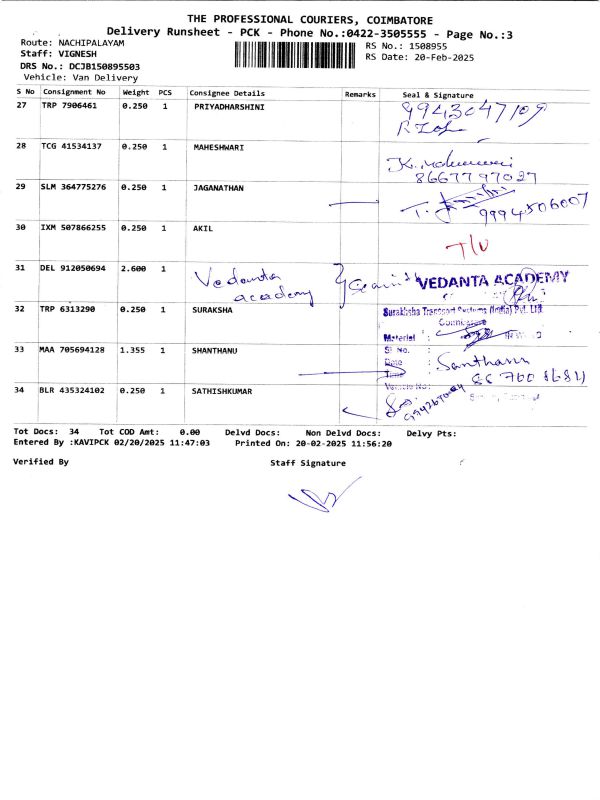 THE PROFESSIONAL COURIERS, COIMBATORE
Delivery Runsheet - PCK - Phone No.:0422-3505555 - Page No.:3
Route: NACHIPALAYAM RS No.: 1508955
Staff: VIGNESH RS Date: 20-Feb-2025
DRS No.: DCJB150895503
Vehicle: Van Delivery
S No Consignment No Weight PCS Consignee Details Remarks Seal & Signature
27 TRP 7906461 0.250 1 PRIYADHARSHINI
28 TCG 41534137 0.250 1 MAHESHWARI
8667797027
29 SLM 364775276 0.250 1 JAGANATHAN
9994506007
30 IXM 507866255 0.250 1 AKIL
31 DEL 912050694 2.600 1 Vedanta academy VEDANTA ACADEMY
32 TRP 6313290 0.250 1 SURAKSHA Suraksha Transport Systems (India) Pvt. Ltd.
Coimbatore
Material :
Sl No. :
33 MAA 705694128 1.355 1 SHANTHANU
Date :
Time :
Vehicle No:
34 BLR 435324102 0.250 1 SATHISHKUMAR
Tot Docs: 34 Tot COD Amt: 0.00 Delvd Docs: Non Delvd Docs: Delvy Pts:
Entered By :KAVIPCK 02/20/2025 11:47:03 Printed On: 20-02-2025 11:56:20
Verified By Staff Signature